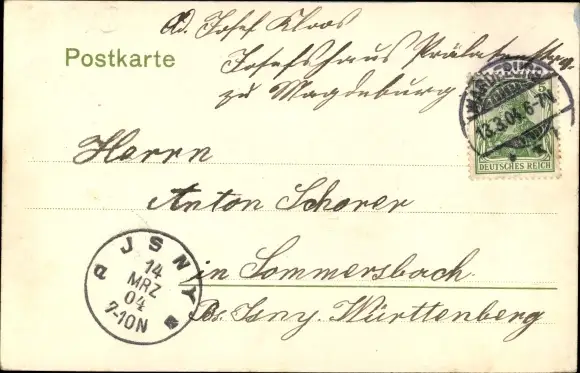 Ad. Josef Kloos
Postkarte
Josefshaus Prälatenstrg.
zu Magdeburg
MAGDEBURG
13.3.04. 6-7N
5
DEUTSCHES REICH
Herrn
Anton Schorer
in Sommersbach
Bs. Isny. Württenberg
JSNY
14
MRZ
04
7-10N